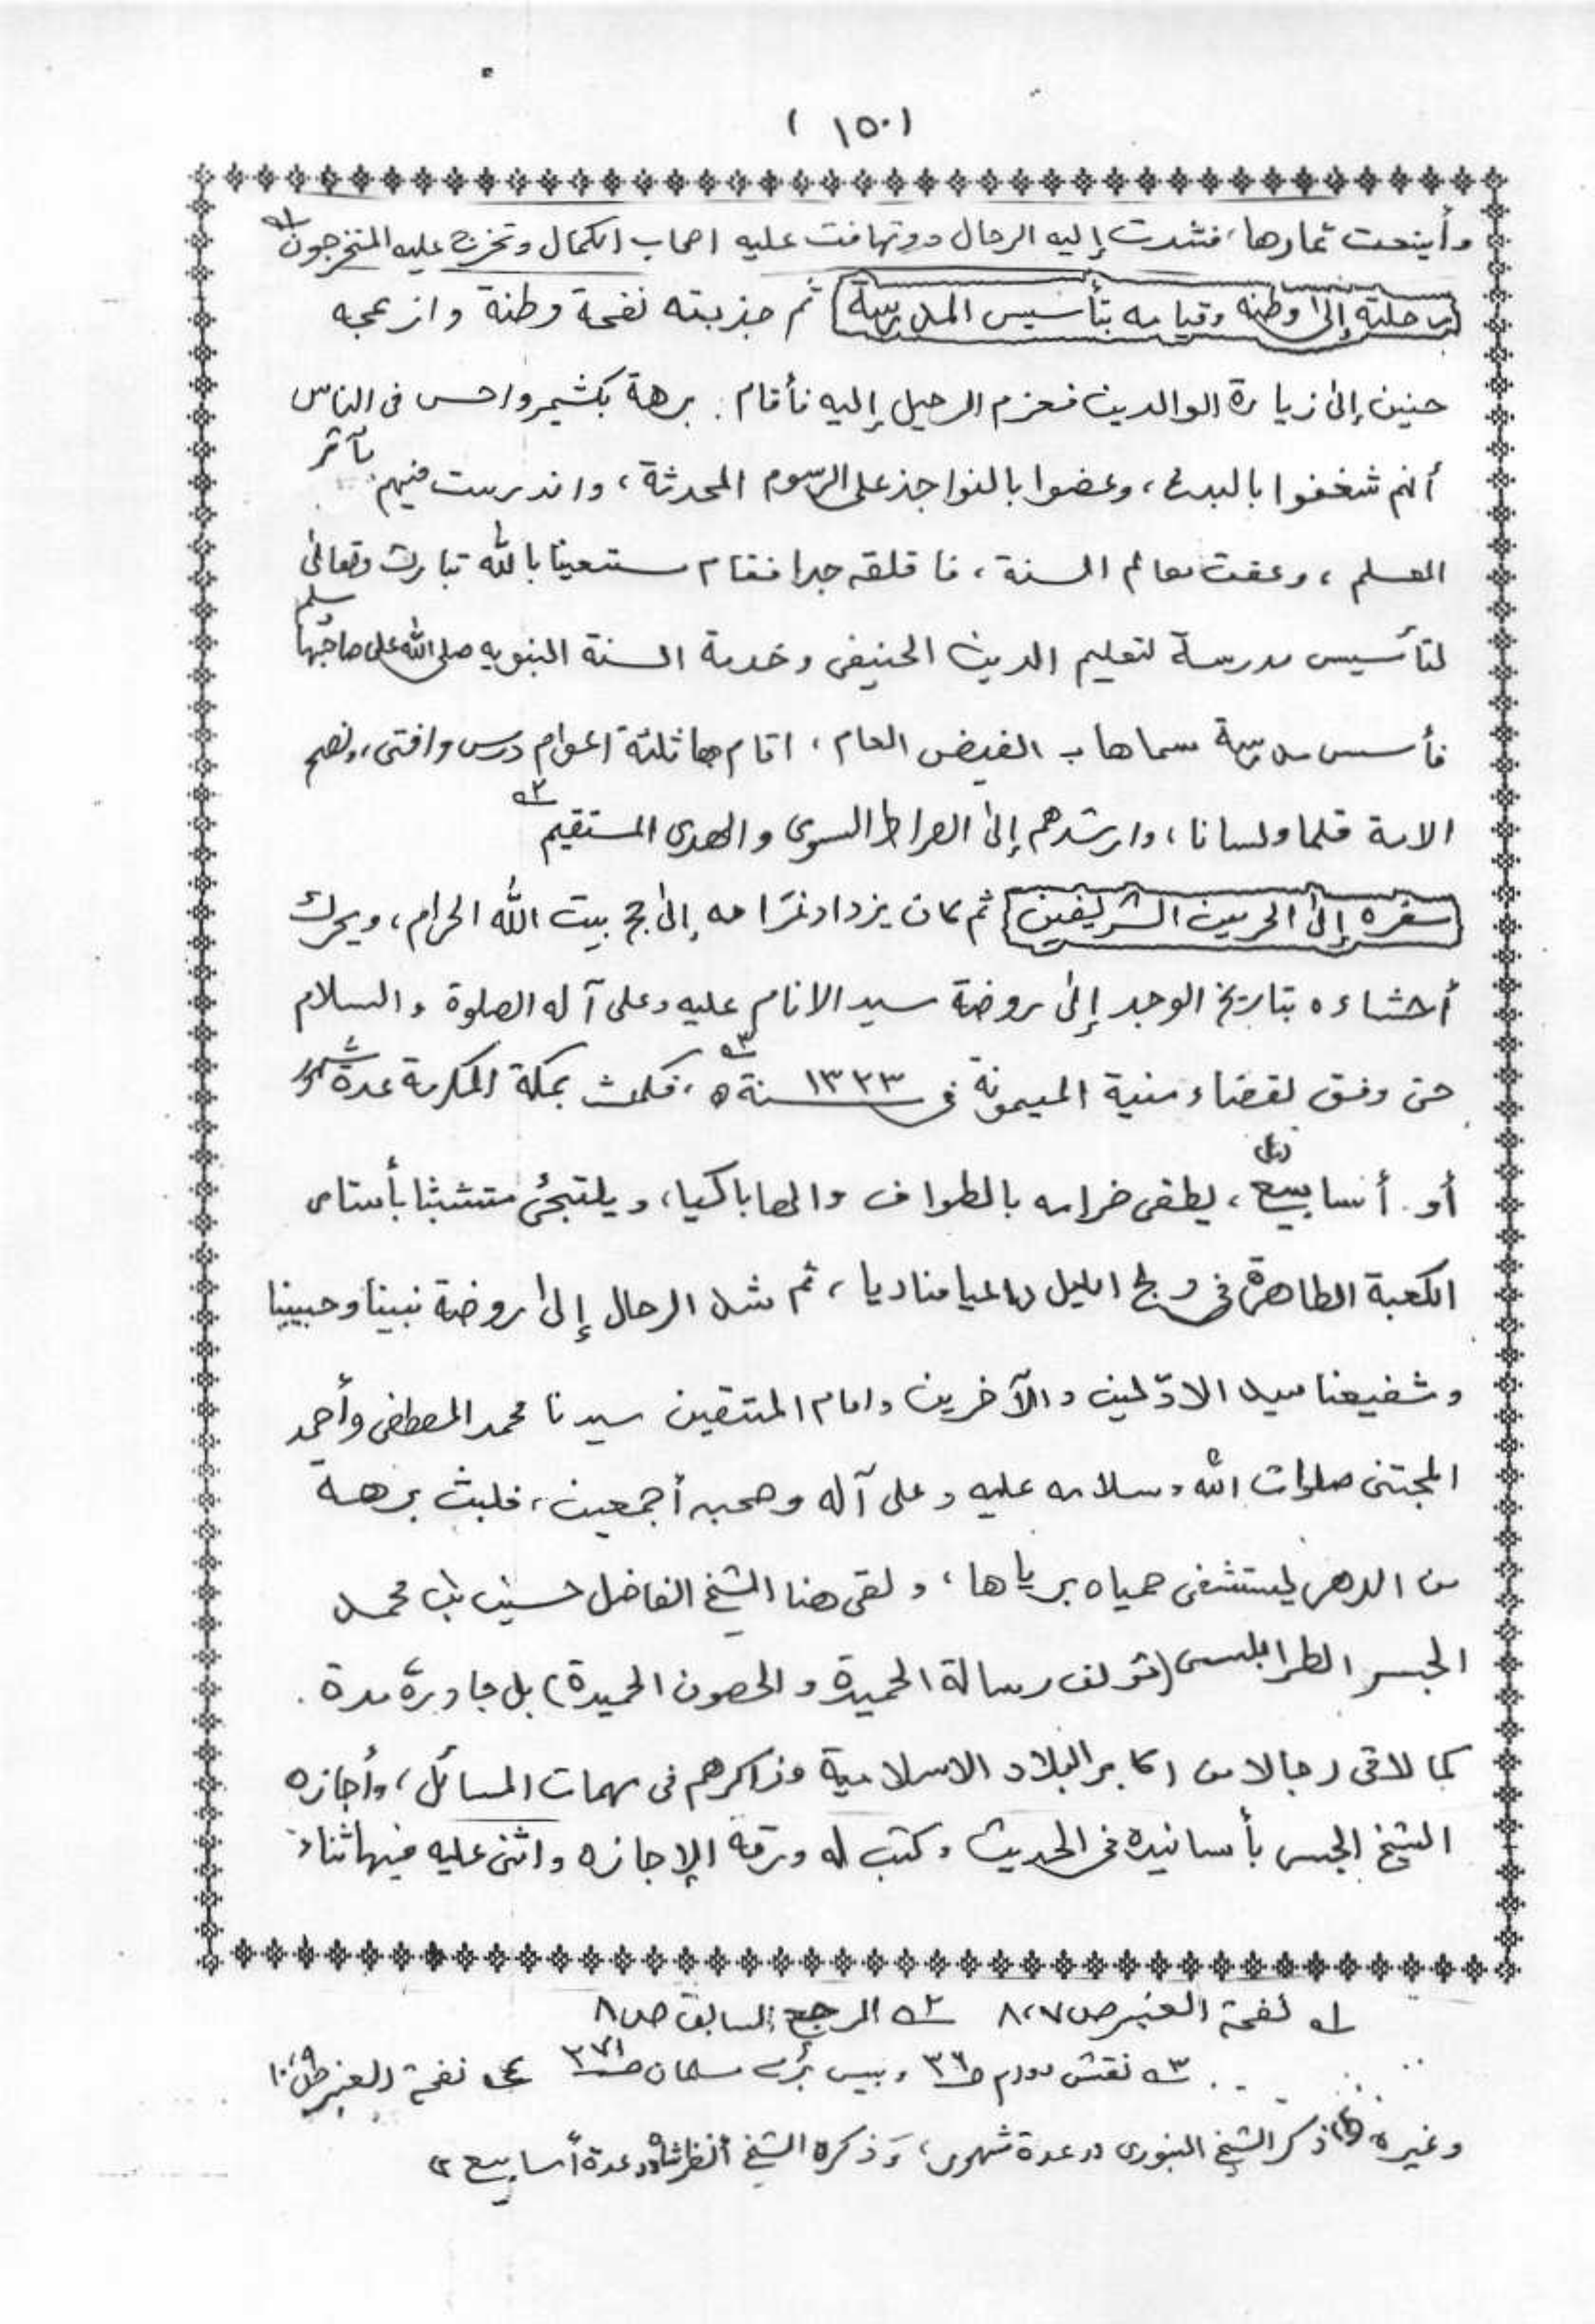 ( ١٥٠ )
وأينعت ثمارها، فشدت إليه الرحال وتهافت عليه اصحاب الكمال وتخرج عليه المتخرجون ١؎
رحلته إلى وطنه وقيامه بتأسيس المدرسة ثم جذبته نفحة وطنة وازعجه
حنين إلى زيارة الوالدين فعزم الرحيل إليه فأقام. برهة بكشمير واحس فى الناس
أنهم شغفوا بالبدع، وعضوا بالنواجذ على الرسوم المحدثة، واندرست فيهم مآثر
العلم، وعفت معالم السنة، فاقلقه جدا فقام مستعينا بالله تبارك وتعالى
لتأسيس مدرسة لتعليم الدين الحنيفى وخدمة السنة النبويه صلى الله على صاحبها وسلم
فأسس مدرسة سماها ب الفيض العام، اقام بها ثلثة اعوام درس وافتى، ونصح
الامة قلما ولسانا، وارشدهم إلى الصراط السوى والهدى المستقيم ٢؎
سفره إلى الحرمين الشريفين ثم كان يزداد غرامه إلى حج بيت الله الحرام، ويحرك
أحشاءه بتاريخ الوجد إلى روضة سيد الانام عليه وعلى آله الصلوة والسلام
حتى وفق لقضاء منية الميمونة فى سنة ١٣٢٣ ه ٣؎، فمكث بمكة المكرمة عدة شهور
أو. أسابيع (٤)، يطفى ضرامه بالطواف والها باكيا، ويلتجئ متشبثا بأستار
الكعبة الطاهرة فى دلج الليل داعيا مناديا، ثم شد الرحال إلى روضة نبينا وحبيبنا
وشفيعنا سيد الاوّلين والآخرين وامام المتقين سيدنا محمد المصطفى وأحمد
المجتبى صلوات الله وسلامه عليه وعلى آله وصحبه أجمعين، فلبث برهة
من الدهر ليستشفى حمياه برياها، ولقى هنا الشيخ الفاضل حسين بن محمد
الجسر الطرابلسى (مؤلف رسالة الحميدة والحصون الحميدة) بل جاوره مدة.
كما لاقى رجالا من اكابر البلاد الاسلامية وذاكرهم فى مهمات المسائل، وأجازه
الشيخ الجسر بأسانيده فى الحديث وكتب له ورقة الإجازه واثنى عليه فيها ثناء
١؎ نفحة العنبر ص ٧، ٨ ٢؎ المرجع السابق ص ٨
٣؎ نقش دوام ص ٣٦ وبيس بڑے مسلمان ص ٣٧١ ٤؎ نفحة العنبر ص ٩، ١٠
وغيره (٤) ذكر الشيخ البنورى در عدة شهور، وذكره الشيخ أنظر شاه در عدة أسابيع ١٢